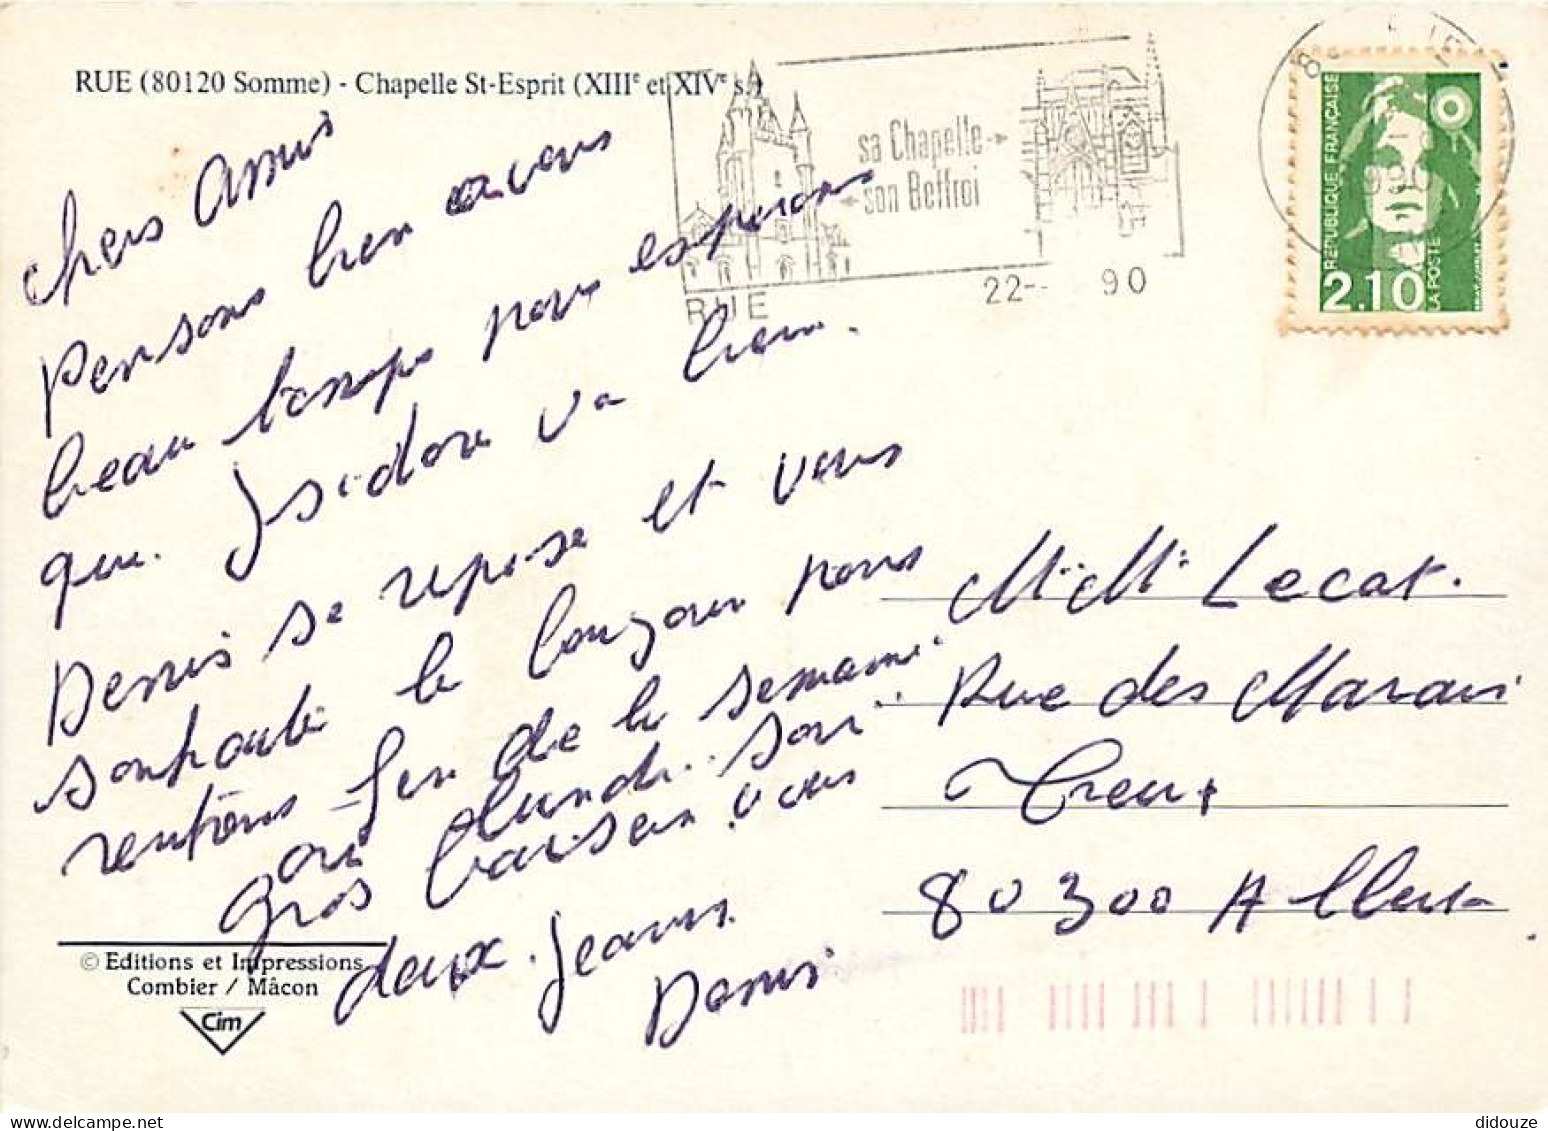 RUE (80120 Somme) - Chapelle St-Esprit (XIIIe et XIVe s.)
sa Chapelle
son Beffroi
RUE
22- 90
REPUBLIQUE FRANÇAISE
2.10
LA POSTE
Chers Amis
Pensons bien a vous
beau temps nous esperons
que Isidore va bien.
Denis se repose et vous
souhaite le bonjour nous
rentrons fin de la semaine
ou lundi. soir.
gros baisers a vous
deux. Jeanne
Denis
M. Mme Lecat.
Rue des Marais
Treux
80300 Albert
© Editions et Impressions
Combier / Mâcon
Cim
didouze